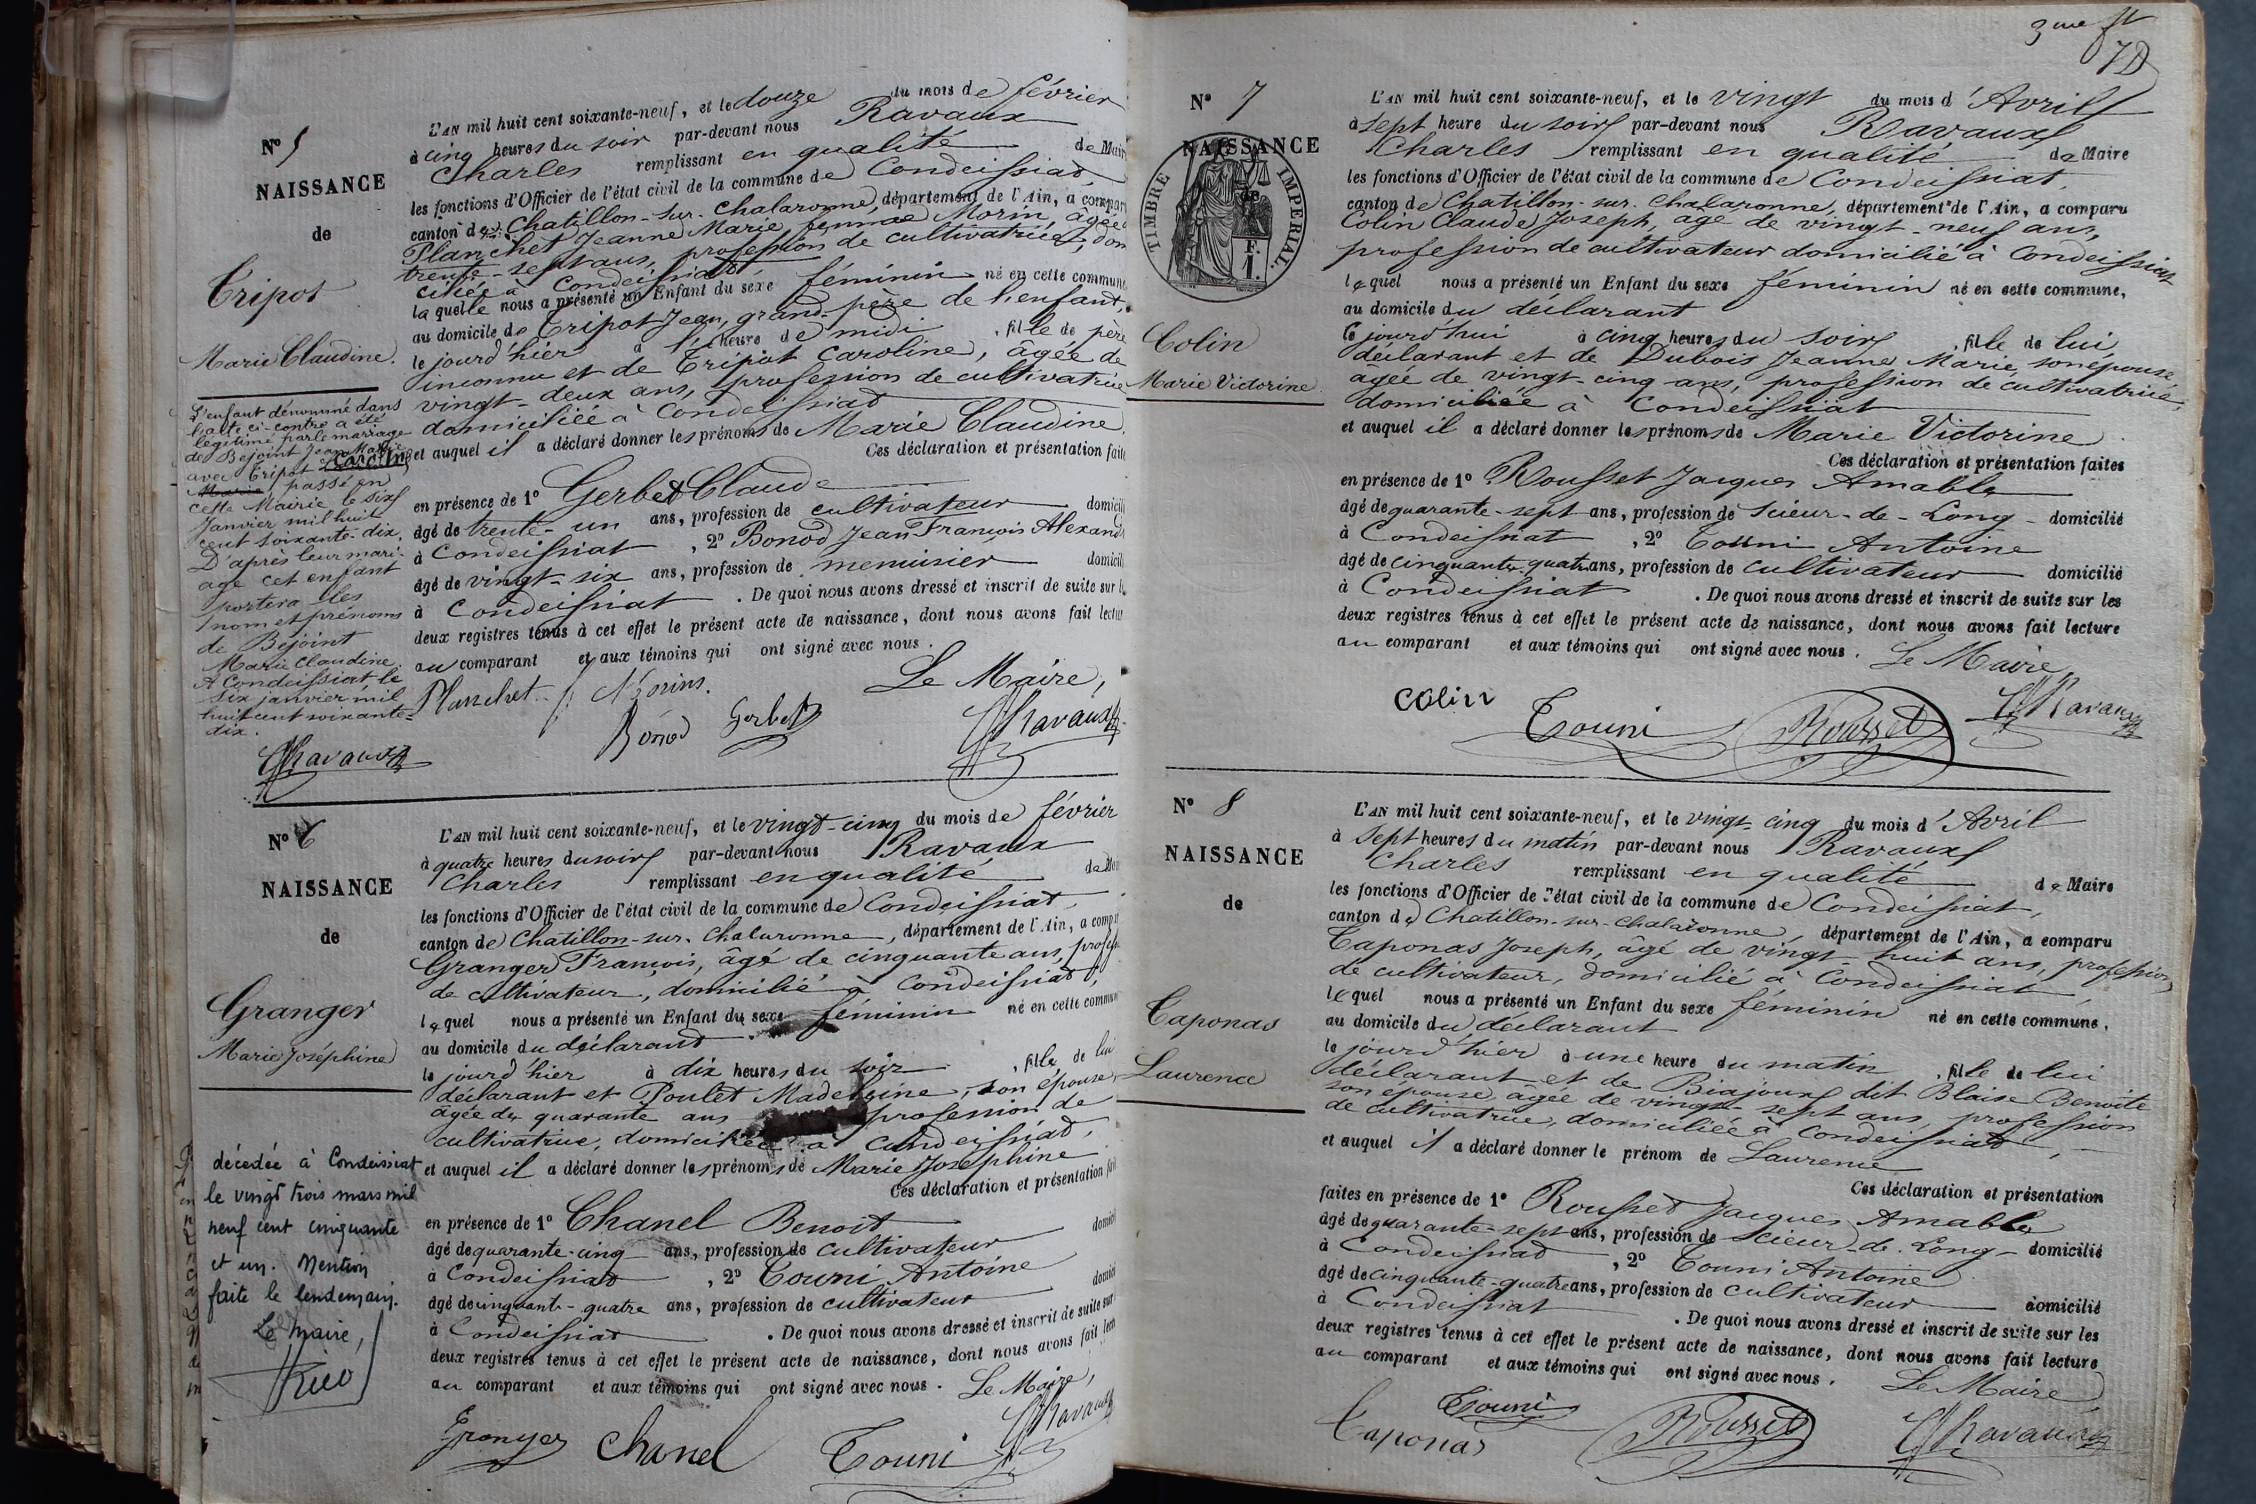 N° 5
NAISSANCE
de
Tripot
Marie Claudine.
L'enfant dénommé dans
l'acte ci-contre a été
légitimé par le mariage
de Bejoint Jean Marie
avec Tripot Caroline
Marie passé en
cette Mairie le six
Janvier mil huit
cent soixante-dix.
D'après leur mari-
age cet enfant
portera les
nom et prénoms
de Béjoint
Marie Claudine.
A Condeissiat le
six janvier mil
huit cent soixante-
dix.
CRavaux
L'AN mil huit cent soixante-neuf, et le douze du mois de février
à cinq heures du soir par-devant nous Ravaux
Charles remplissant en qualité de Mair
les fonctions d'Officier de l'état civil de la commune de Condeissiat,
canton de Chatillon-sur-Chalaronne, département de l'Ain, a compar
Planchet Jeanne Marie femme Morin, âgée
trente-sept ans, profession de cultivatrice, dom
ciliée à Condeissiat
la quelle nous a présenté un Enfant du sexe féminin né en cette commune
au domicile de Tripot Jean, grand-père de l'enfant,
le jourd'hier à l' heure de midi , fille de père
inconnu et de Tripot Caroline, âgée de
vingt-deux ans, profession de cultivatrice
domiciliée à Condeissiat
et auquel il a déclaré donner les prénoms de Marie Claudine.
Ces déclaration et présentation faite
en présence de 1° Gerbet Claude
âgé de trente-un ans, profession de cultivateur domicili
à Condeissiat , 2° Bonod Jean François Alexand
âgé de vingt-six ans, profession de menuisier domicili
à Condeissiat . De quoi nous avons dressé et inscrit de suite sur le
deux registres tenus à cet effet le présent acte de naissance, dont nous avons fait lectur
au comparant et aux témoins qui ont signé avec nous.
Le Maire,
Planchet f Morins.
Bonod Gerbet CRavaux
N° 6
NAISSANCE
de
Granger
Marie Joséphine
décédée à Condeissiat
le vingt trois mars mil
neuf cent cinquante
et un. Mention
faite le lendemain.
Le Maire,
L'AN mil huit cent soixante-neuf, et le vingt-cinq du mois de février
à quatre heures du soir par-devant nous Ravaux
Charles remplissant en qualité de Mair
les fonctions d'Officier de l'état civil de la commune de Condeissiat,
canton de Chatillon-sur-Chalaronne, département de l'Ain, a compar
Granger François, âgé de cinquante ans, profess
de cultivateur, domicilié à Condeissiat,
le quel nous a présenté un Enfant du sexe féminin né en cette commun
au domicile du déclarant.
le jourd'hier à dix heures du soir , fille de lui
déclarant et Poulet Madeleine, son épouse,
âgée de quarante ans profession de
cultivatrice, domiciliée à Condeissiat,
et auquel il a déclaré donner les prénoms de Marie Joséphine
Ces déclaration et présentation fait
en présence de 1° Chanel Benoit
âgé de quarante-cinq ans, profession de cultivateur domici
à Condeissiat , 2° Touni Antoine
âgé de cinquante-quatre ans, profession de cultivateur domici
à Condeissiat . De quoi nous avons dressé et inscrit de suite sur
deux registres tenus à cet effet le présent acte de naissance, dont nous avons fait lectu
au comparant et aux témoins qui ont signé avec nous. Le Maire,
Granger Chanel Touni CRavaux
3me ft
N° 7
NAISSANCE
de
TIMBRE IMPÉRIAL.
F.
1.
Colin
Marie Victorine.
L'AN mil huit cent soixante-neuf, et le vingt du mois d'Avril
à sept heure du soir par-devant nous Ravaux
Charles remplissant en qualité de Maire
les fonctions d'Officier de l'état civil de la commune de Condeissiat,
canton de Chatillon-sur-Chalaronne, département de l'Ain, a comparu
Colin Claude Joseph, âgé de vingt-neuf ans,
profession de cultivateur domicilié à Condeissiat
le quel nous a présenté un Enfant du sexe féminin né en cette commune,
au domicile du déclarant
le jourd'hui à cinq heures du soir , fille de lui
déclarant et de Dubois Jeanne Marie, son épouse
âgée de vingt-cinq ans, profession de cultivatrice,
domiciliée à Condeissiat
et auquel il a déclaré donner les prénoms de Marie Victorine.
Ces déclaration et présentation faites
en présence de 1° Rousset Jacques Amable
âgé de quarante-sept ans, profession de Scieur-de-Long domicilié
à Condeissiat , 2° Touni Antoine
âgé de cinquante-quatre ans, profession de cultivateur domicilié
à Condeissiat . De quoi nous avons dressé et inscrit de suite sur les
deux registres tenus à cet effet le présent acte de naissance, dont nous avons fait lecture
au comparant et aux témoins qui ont signé avec nous. Le Maire,
Colin Touni Rousset CRavaux
N° 8
NAISSANCE
de
Caponas
Laurence
L'AN mil huit cent soixante-neuf, et le vingt-cinq du mois d'Avril
à sept heures du matin par-devant nous Ravaux
Charles remplissant en qualité de Maire
les fonctions d'Officier de l'état civil de la commune de Condeissiat,
canton de Chatillon-sur-Chalaronne, département de l'Ain, a comparu
Caponas Joseph, âgé de vingt-huit ans, profession
de cultivateur, domicilié à Condeissiat,
le quel nous a présenté un Enfant du sexe féminin né en cette commune,
au domicile du déclarant
le jourd'hier à une heure du matin , fille de lui
déclarant et de Biajoux dit Blaise Benoite
son épouse, âgée de vingt-sept ans, profession
de cultivatrice, domiciliée à Condeissiat,
et auquel il a déclaré donner le prénom de Laurence
Ces déclaration et présentation
faites en présence de 1° Rousset Jacques Amable
âgé de quarante-sept ans, profession de Scieur-de-Long domicilié
à Condeissiat , 2° Touni Antoine
âgé de cinquante-quatre ans, profession de cultivateur domicilié
à Condeissiat . De quoi nous avons dressé et inscrit de suite sur les
deux registres tenus à cet effet le présent acte de naissance, dont nous avons fait lecture
au comparant et aux témoins qui ont signé avec nous. Le Maire,
Caponas Touni Rousset CRavaux